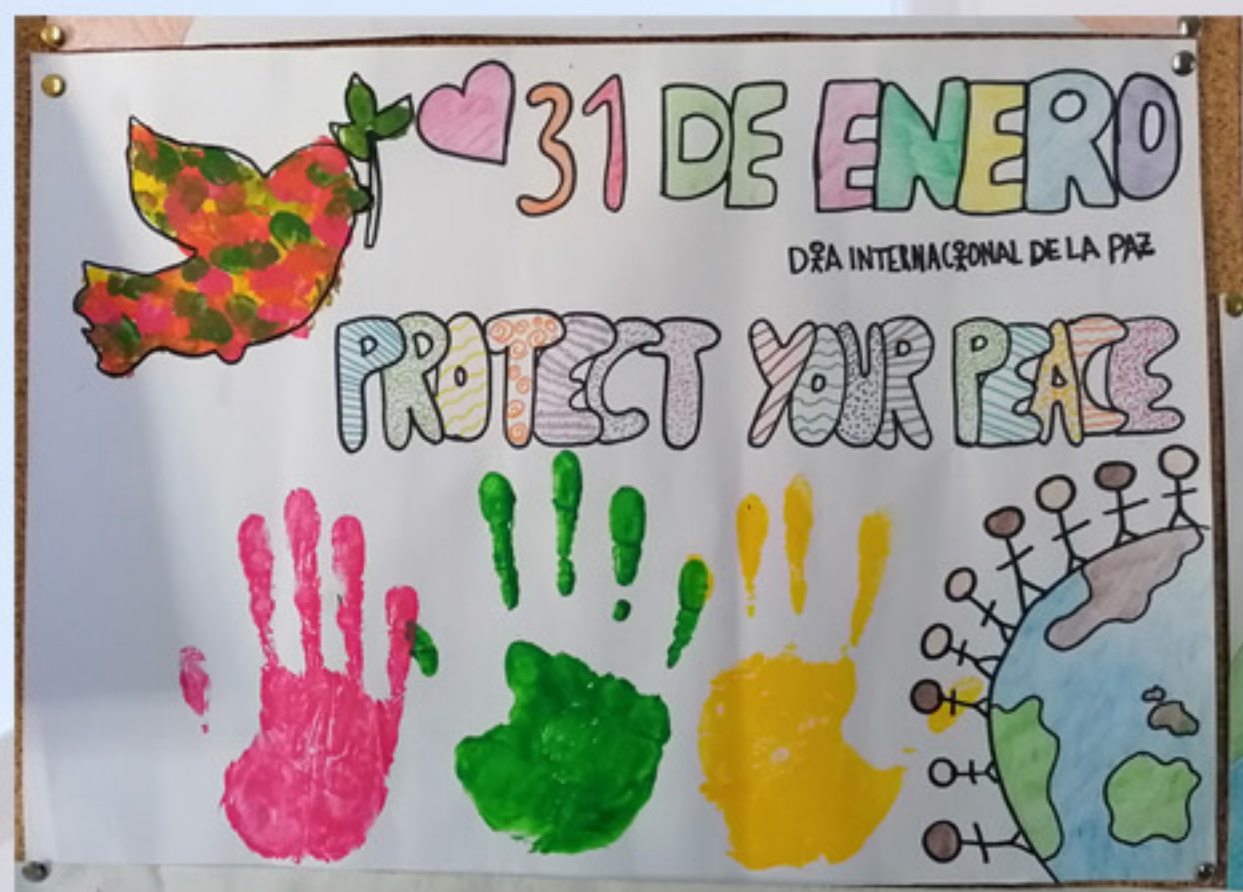 31 DE ENERO
DIA INTERNACIONAL DE LA PAZ
PROTECT YOUR PEACE